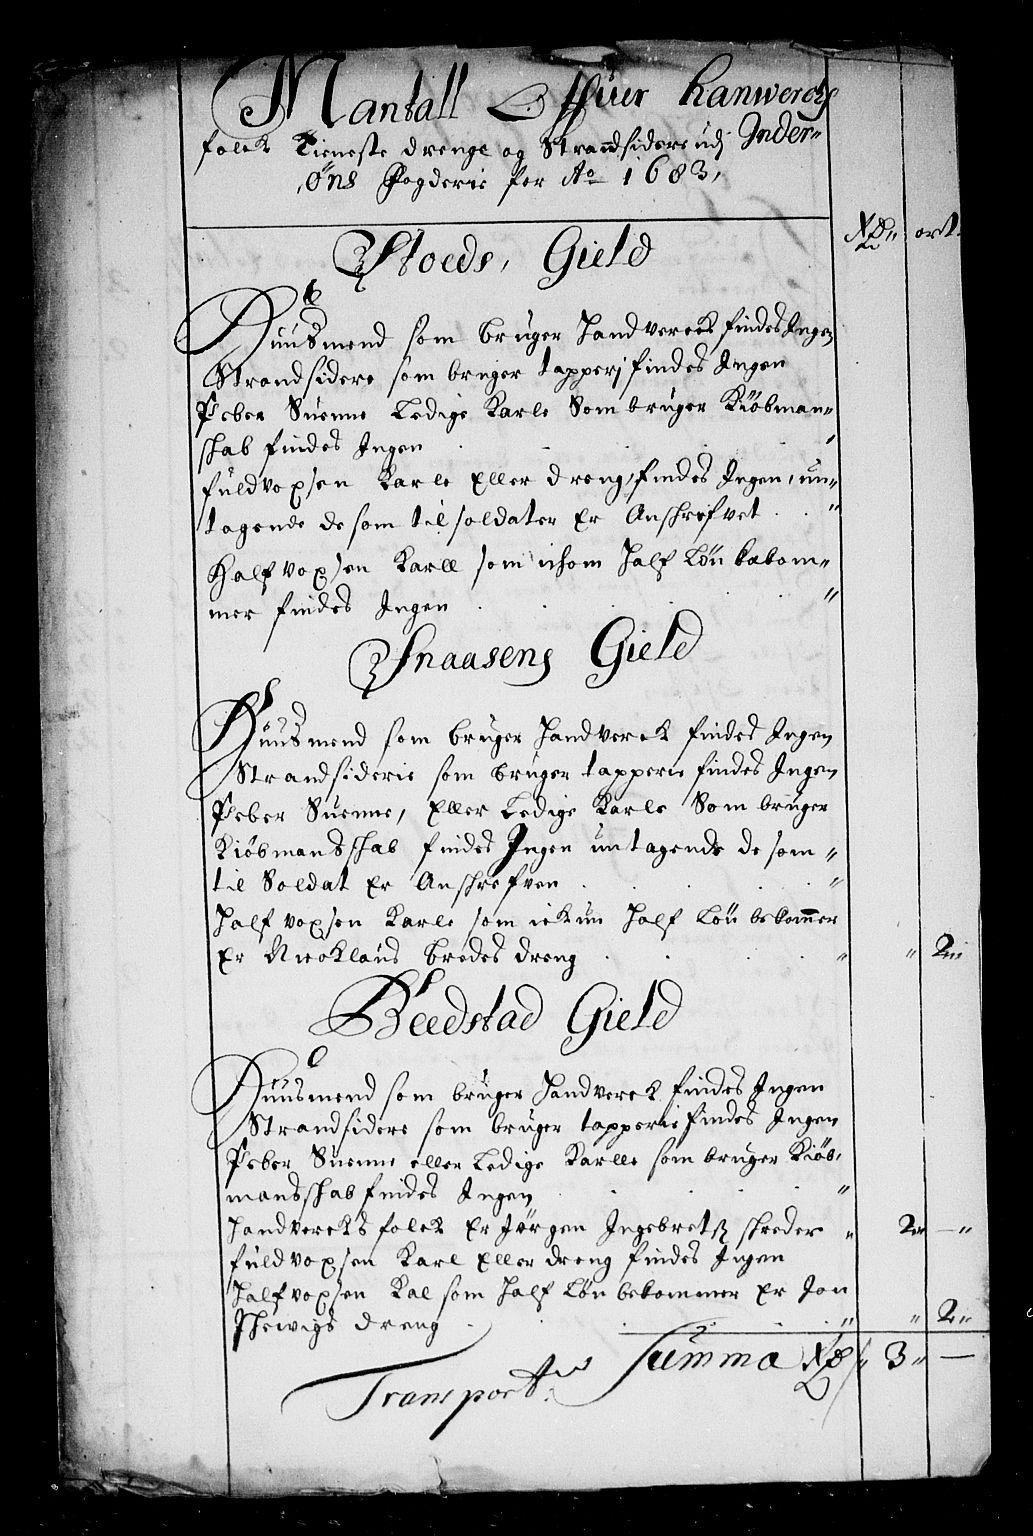 Mantall Offuer hanwerchs
folck Tieneste drenge og Strandsidere udj Inder-
öns fogderie for Ao 1683,
Rd ort
Stoeds, Gield
Huusmend som bruger handverck findes Ingen
Strandsidere som bruger tapperj findes Ingen
Peber Suenne Ledige Karle Som bruger Kiöbman-
skab findes Ingen
fuldvoxsen Karle Eller dreng, findes Ingen, un-
tagende de som til soldater Er Anschrefvet
Halfvoxsen Karll som ichom half Lön bekom-
mer findes Ingen
Snaasens Gield
Huusmend som bruger handverck findes Ingen
Strandsiderie som bruger tapperie findes Ingen
Peber Suenne, Eller Ledige Karle Som bruger
Kiöbmandsskab findes Ingen untagende de som
til Soldat Er Anschrefven
Half voxsen Karle som ickun half Lön bekommer
Er Nicklaus bredes dreng " 2
Beedstad Gield
Huusmend som bruger handverck findes Ingen
Strandsidere som bruger tapperie findes Ingen
Peber Suenne eller Ledige Karlle som bruger Kiöb-
mansskab findes Ingen
handvercksfolck Er Jörgen Ingebretz skreder 2 — "
fuldvoxsen Karl Eller dreng findes Ingen
Halfvoxsen Kal som half Lön bekommer Er Jon
dreng " 2
Summa Rd 3 —
Transport